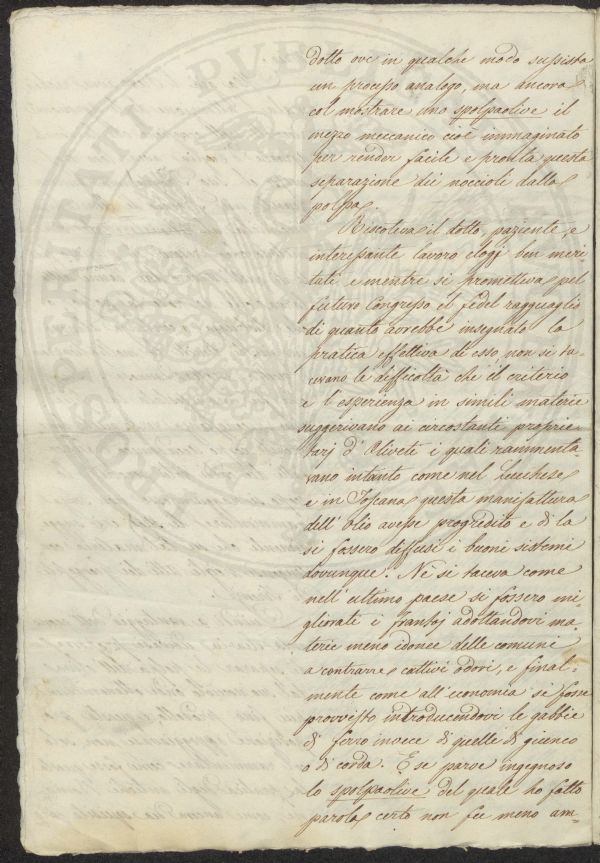 dotto ove in qualche modo sussista
un processo analogo, ma ancora
col mostrare uno spolpaolive il
mezzo meccanico cioè immaginato
per render facile e pronta questa
separazione dei noccioli dalla
polpa.
Riscoteva il dotto, paziente, e
interessante lavoro elogj ben meri
tati, e mentre si prometteva pel
futuro Congresso il fedel ragguaglio
di quanto avrebbe insegnato la
pratica effettiva di esso, non si ta-
cevano le difficoltà che il criterio
e l'esperienza in simili materie
suggerivano ai circostanti proprie-
tarj d'Oliveti i quali rammenta-
vano intanto come nel Lucchese
e in Toscana questa manifattura
dell'olio avesse progredito e di la
si fossero diffusi i buoni sistemi
dovunque. Nè si taceva come
nell'ultimo paese si fossero mi-
gliorati i frantoj adottandovi ma-
terie meno idonee delle comuni
a contrarre cattivi odori, e final-
mente come all'economia si fosse
provvisto introducendovi le gabbie
di ferro invece di quelle di giunco
o di corda. E se parve ingegnoso
lo spolpaolive del quale ho fatto
parola certo non fu meno am-